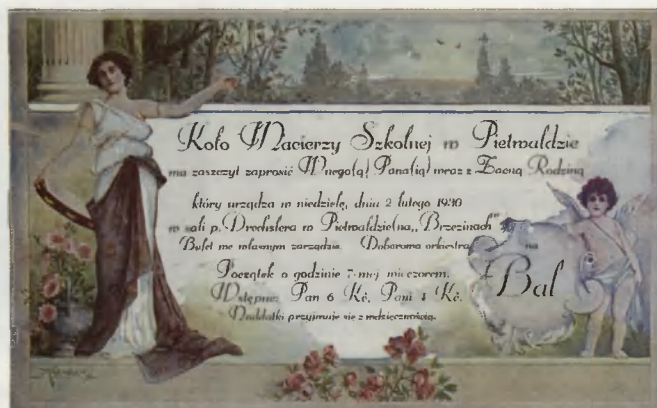 Koło Macierzy Szkolnej w Pietwałdzie
ma zaszczyt zaprosić Wnego(ą) Pana(ią) wraz z Zacną Rodziną
na
Bal
który urządza w niedzielę, dnia 2 lutego 1930
w sali p. Drechslera w Pietwałdzie na „Brzezinach"
Bufet we własnym zarządzie. Doborowa orkiestra
Początek o godzinie 7-mej wieczorem.
Wstępne: Pan 6 Kč, Pani 4 Kč.
Naddatki przyjmuje się z wdzięcznością.